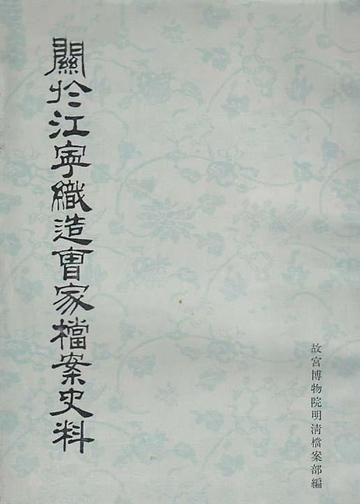 關於江寧織造曹家檔案史料
故宮博物院明清檔案部編